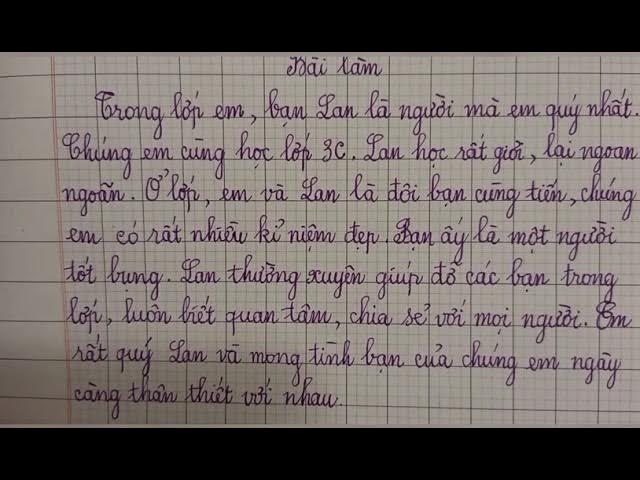 Bài làm
Trong lớp em, bạn Lan là người mà em quý nhất.
Chúng em cùng học lớp 3C. Lan học rất giỏi, lại ngoan
ngoãn. Ở lớp, em và Lan là đôi bạn cùng tiến, chúng
em có rất nhiều kỉ niệm đẹp. Bạn ấy là một người
tốt bụng. Lan thường xuyên giúp đỡ các bạn trong
lớp, luôn biết quan tâm, chia sẻ với mọi người. Em
rất quý Lan và mong tình bạn của chúng em ngày
càng thân thiết với nhau.